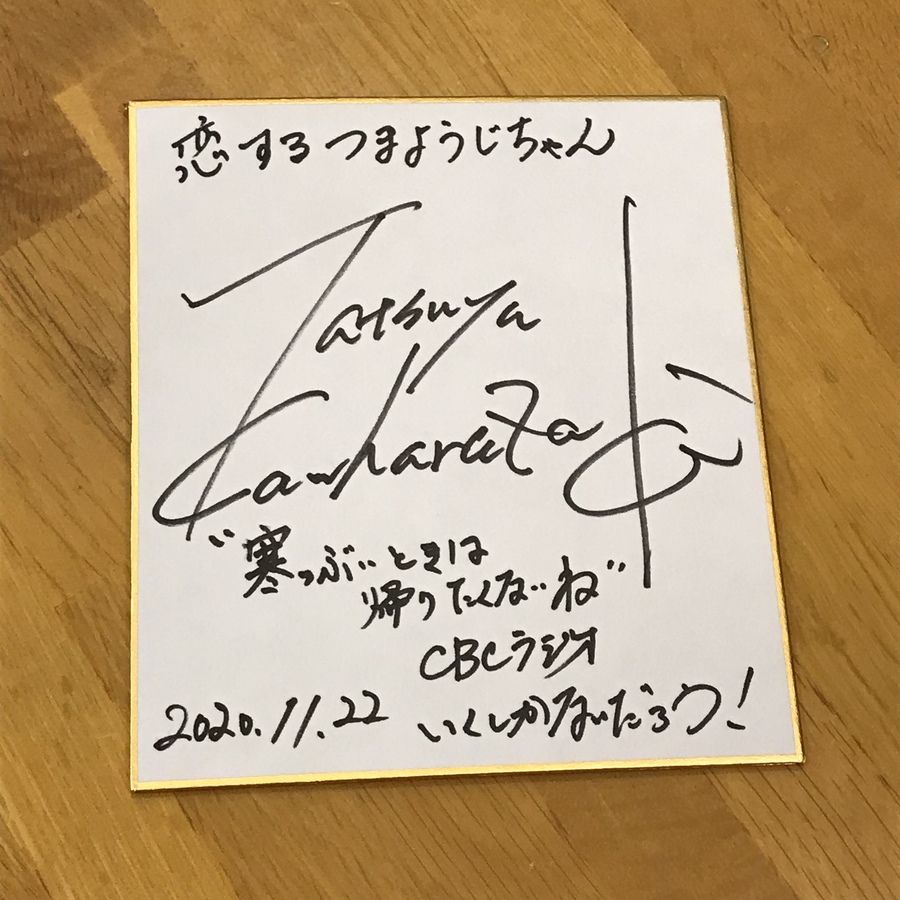 恋するつまようじちゃん
Tatsuya
Kawharazaki
"寒っぶいときは
帰りたくないね"
CBCラジオ
2020.11.22 いくしかないだろう!